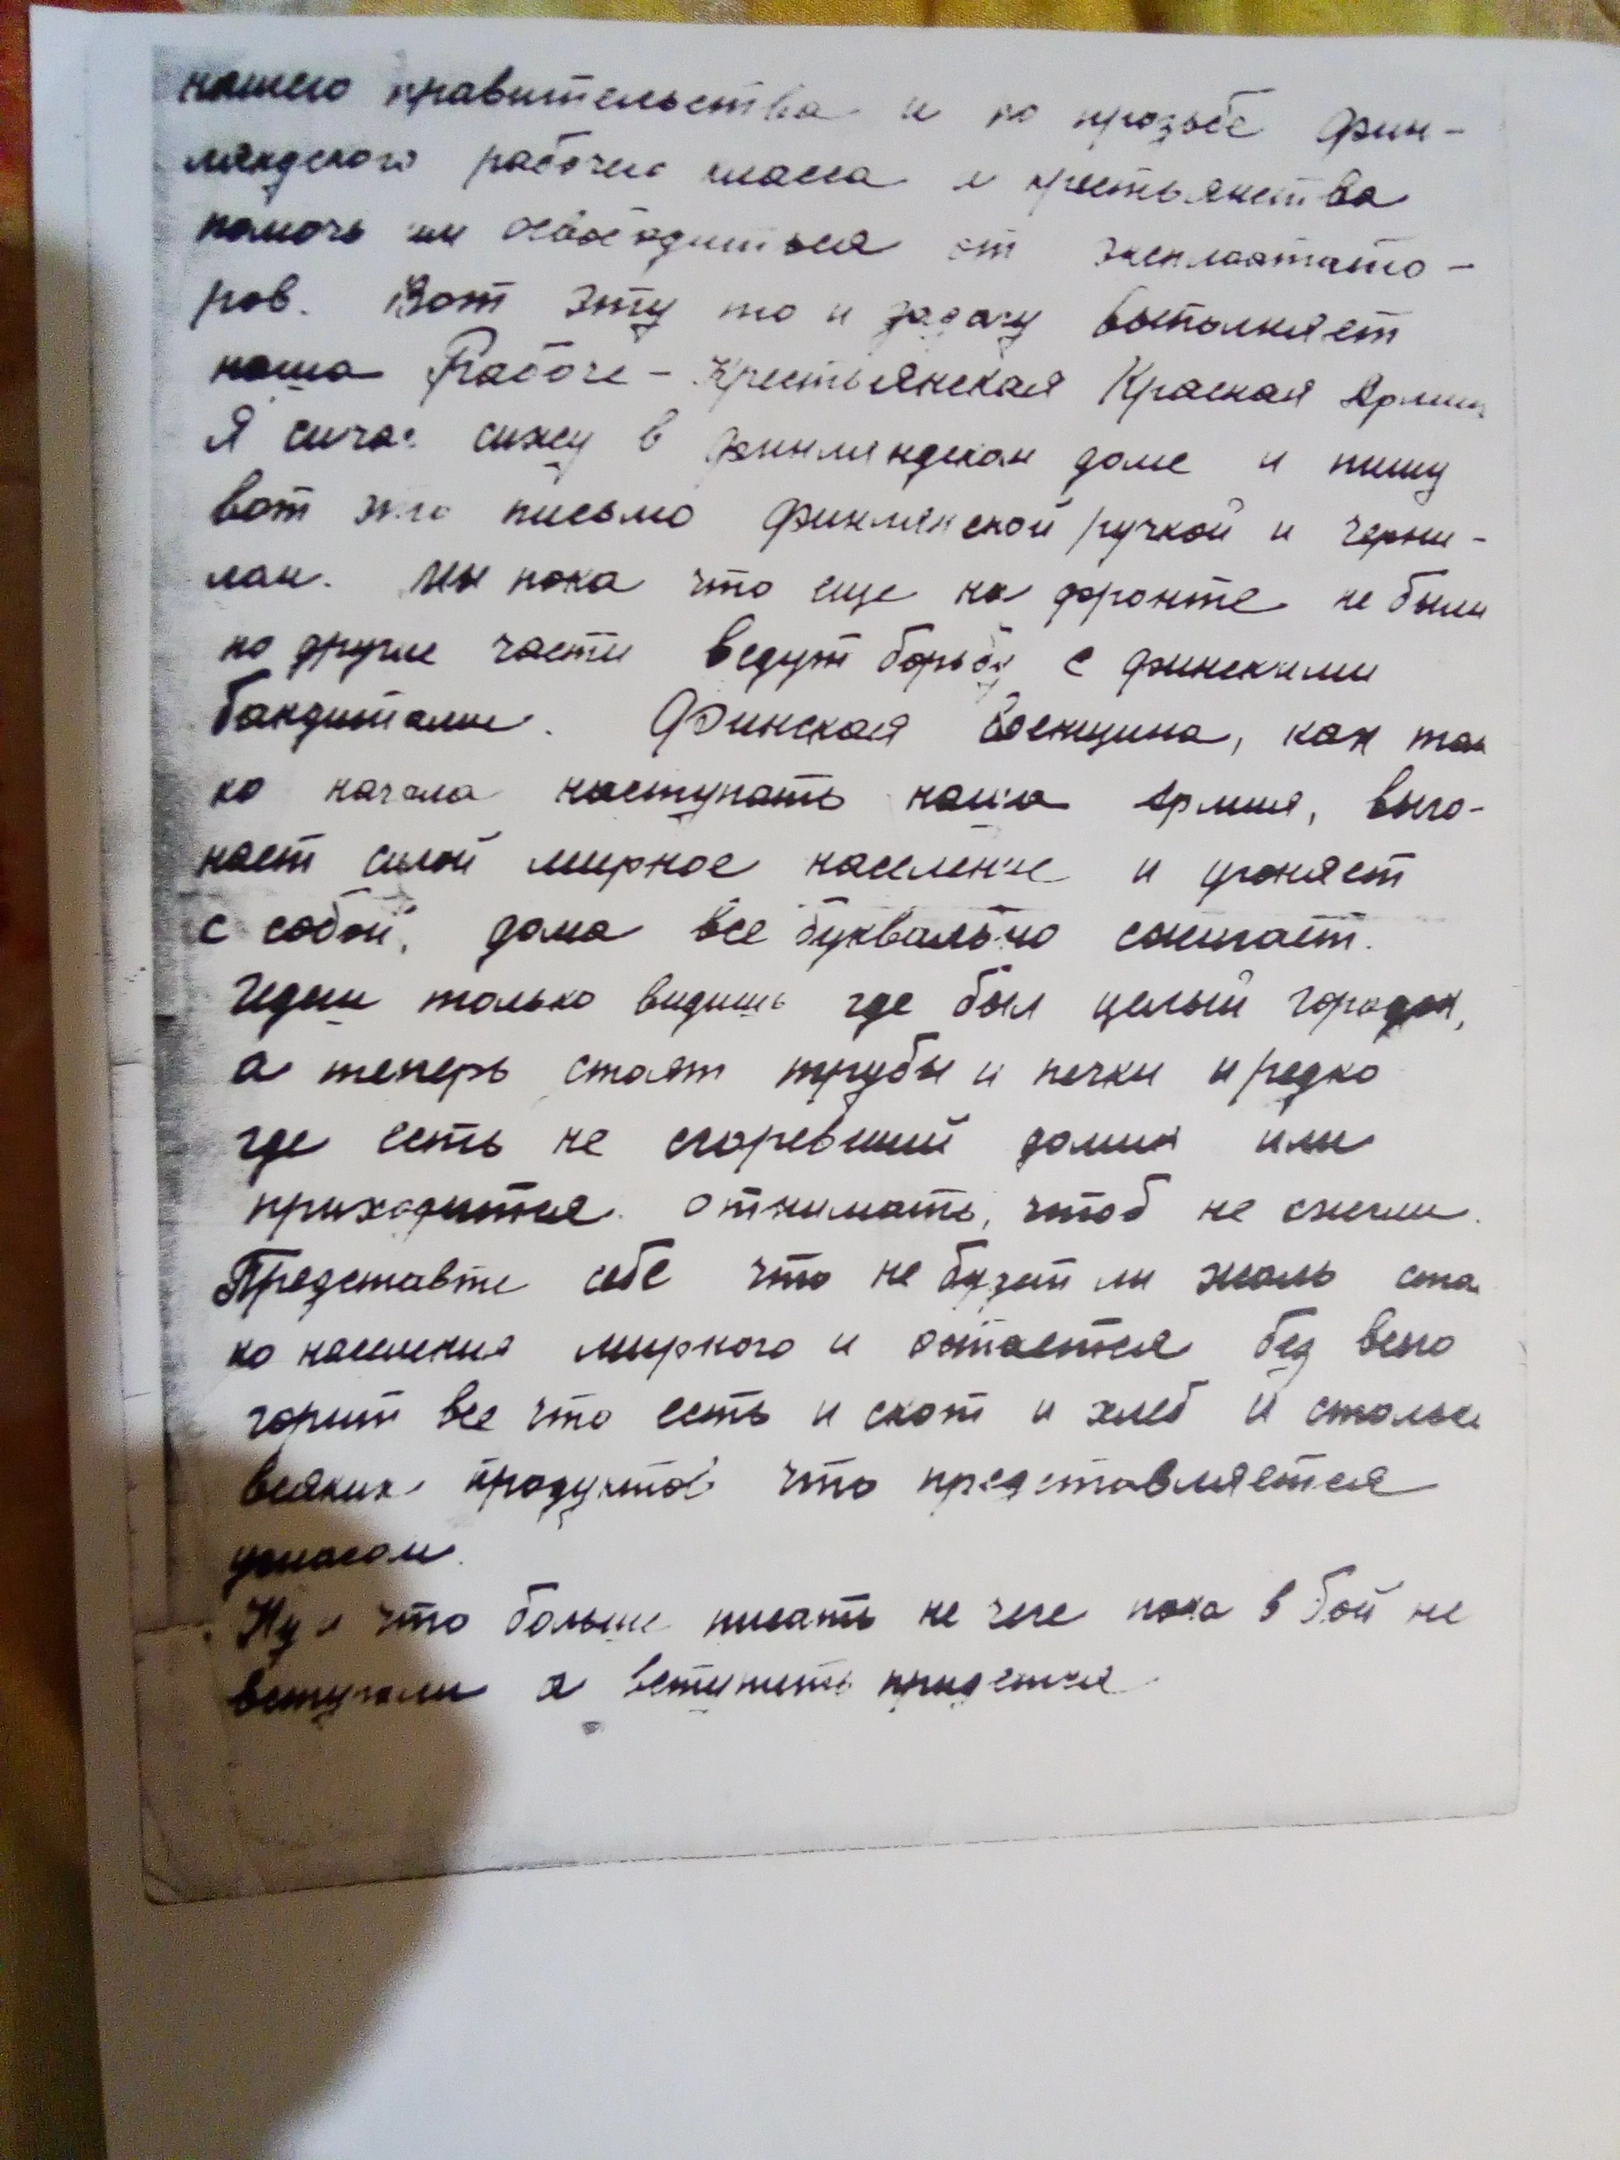 нашего правительства и по прозьбе Фин-
ляндского рабочего класса и крестьянства
помочь им освободиться от эксплоататто-
ров. Вот эту то и задачу выполняет
наша Рабоче-Крестьянская Красная Армия
Я сичас сижу в финляндском доме и пишу
вот это письмо финлянской ручкой и черни-
лам. Мы пока что еще на фронте не были
но другие части ведут борьбу с финскими
бандитами. Финская военщина, как тол
ко начала наступать наша Армия, выго-
няет силой мирное население и угоняет
с собой, дома все буквально сжигает.
Идеш только видишь где был целый городок,
а теперь стоят трубы и печки и редко
где есть не сгоревший домик или
приходится отнимать, чтоб не сжегли.
Представте себе что не будет ли жаль стол
ко населения мирного и остается без всего
горит все что есть и скот и хлеб и столько
всяких продуктов что представляется
ужасом.
Ну и что больше писать не чего пока в бой не
вступали а вступить придется